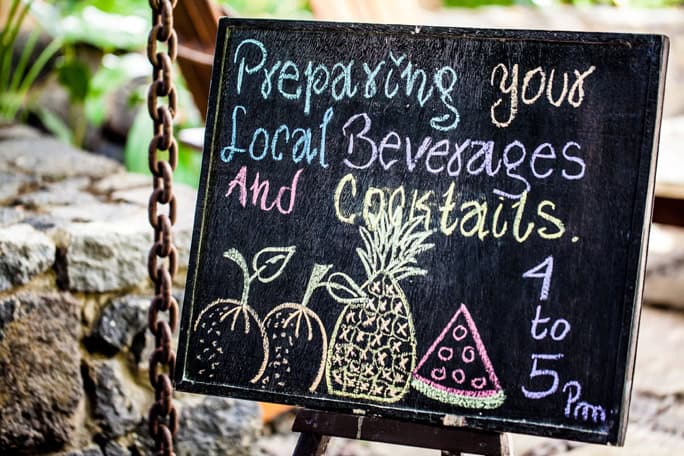 Preparing your
Local Beverages
And Cocktails.
4
to
5 Pm